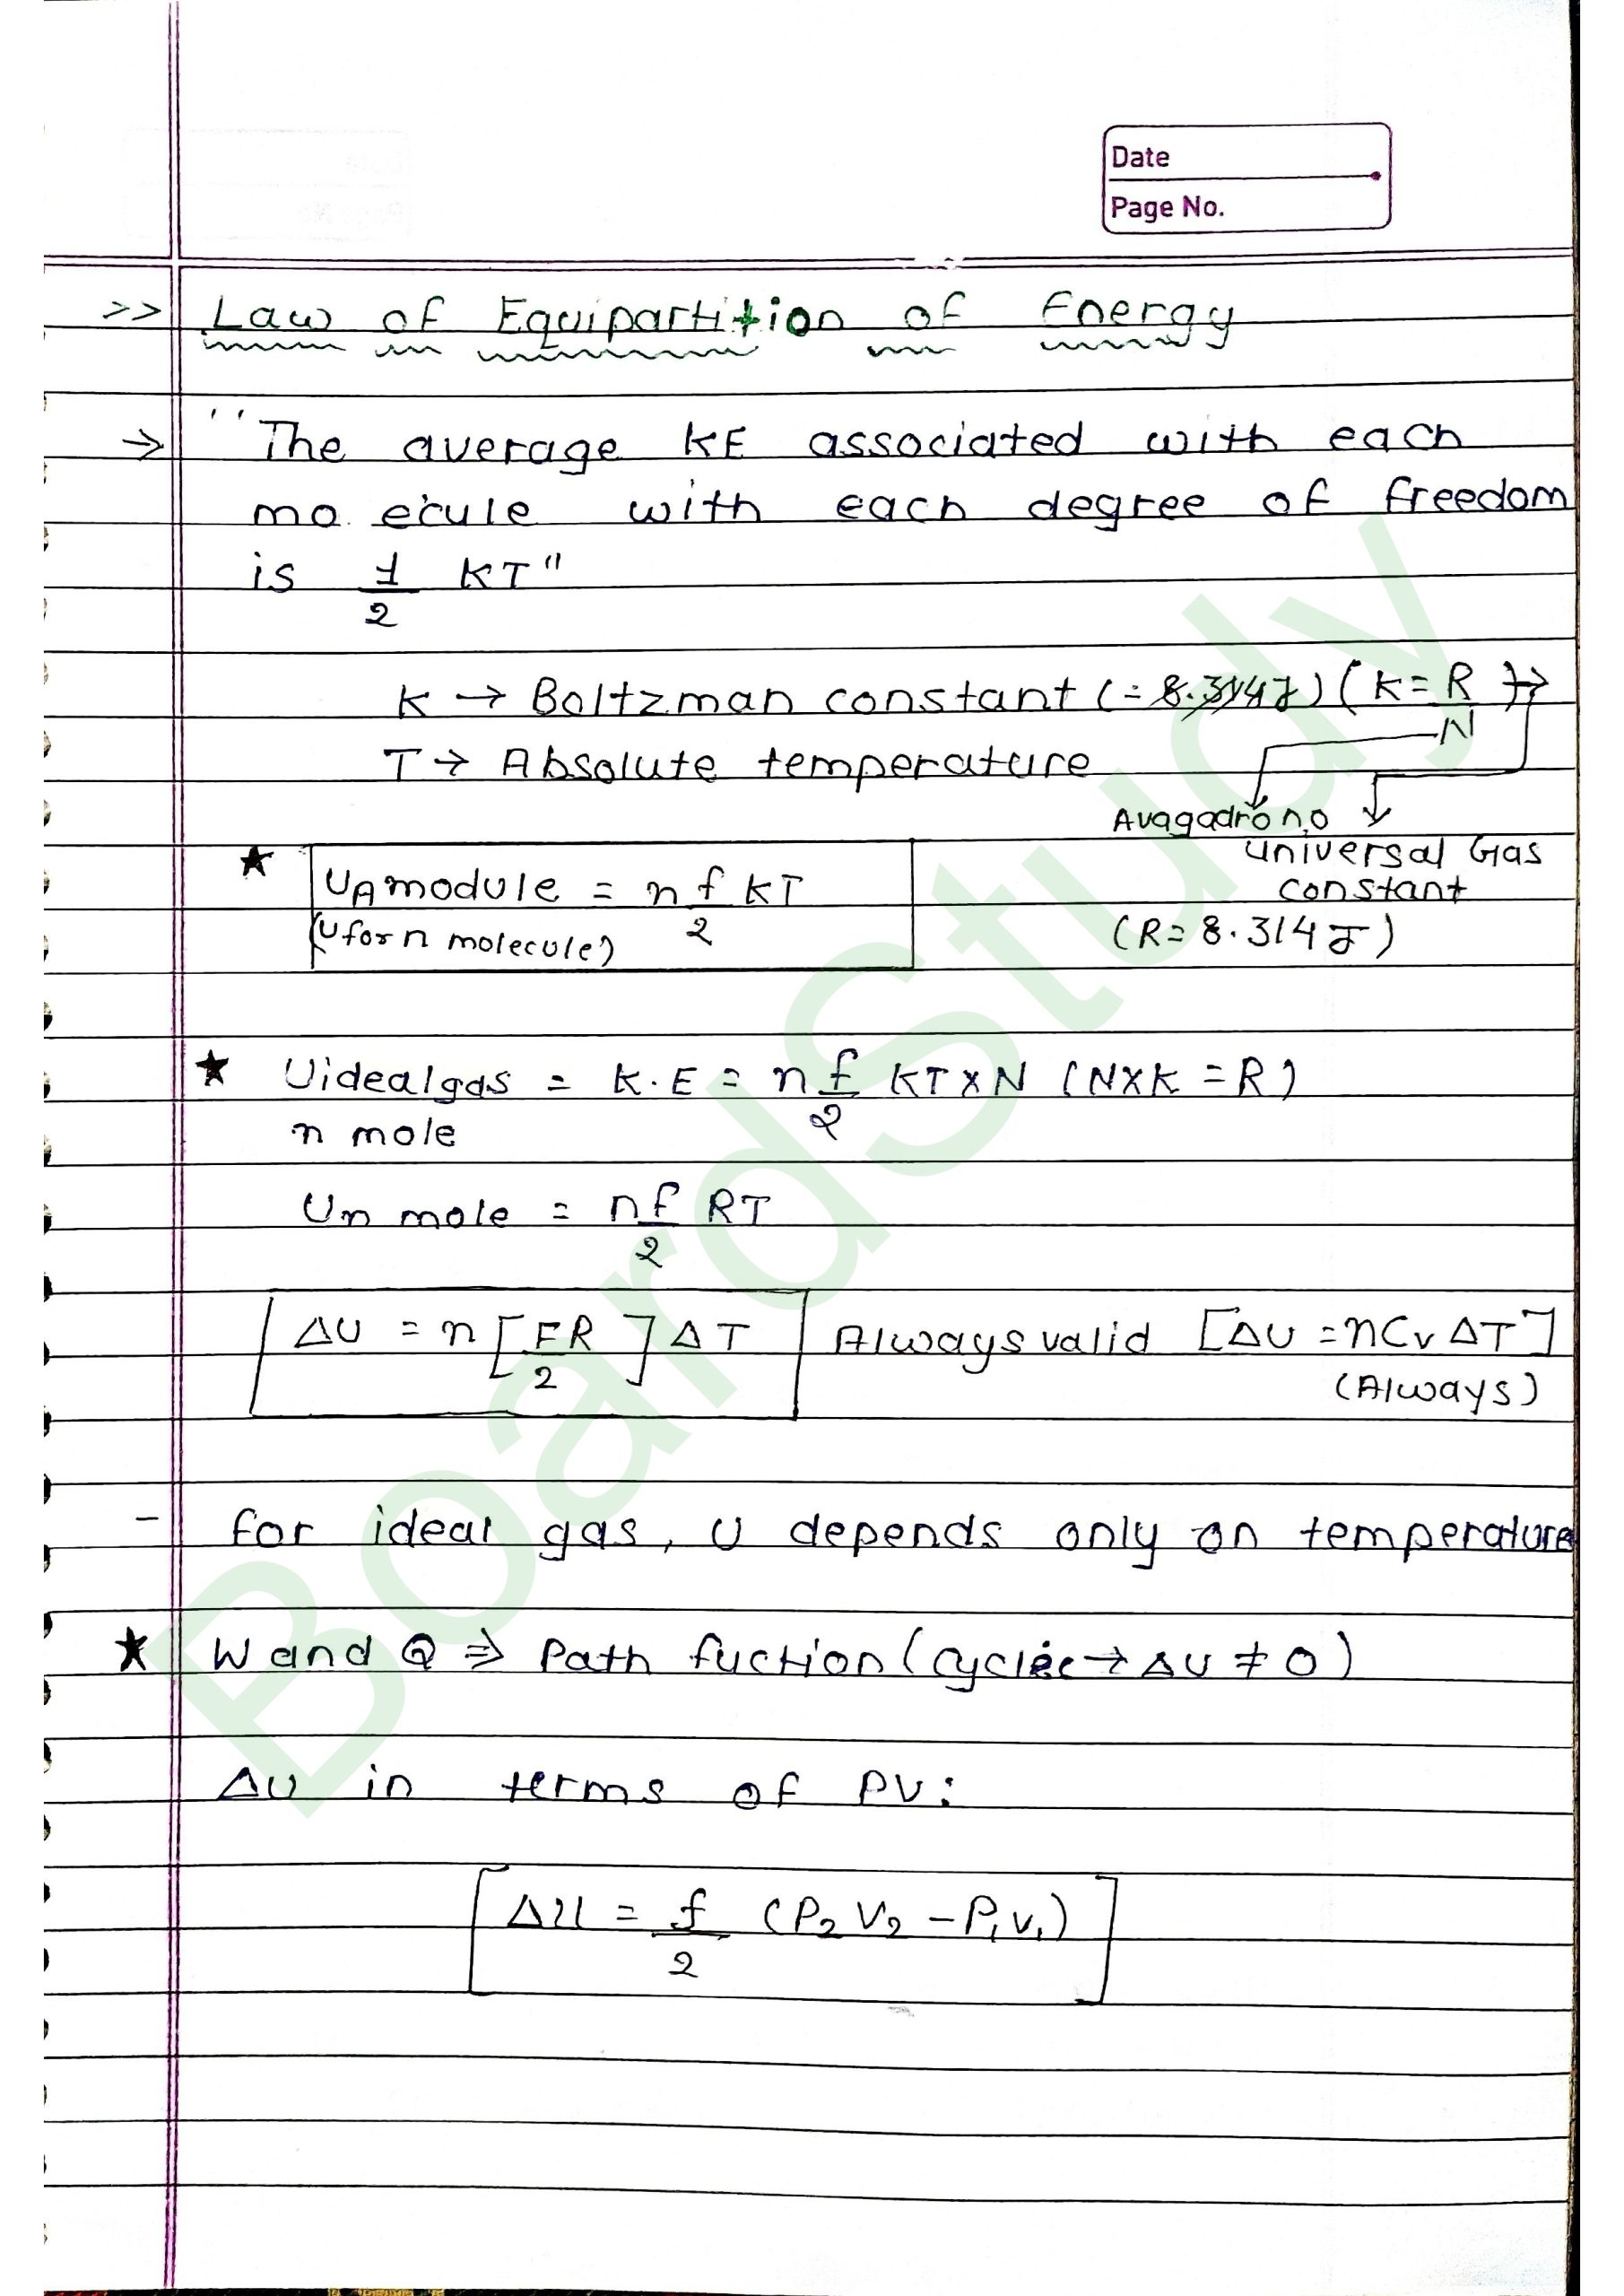 Date
Page No.
>> Law of Equipartition of Energy
→ "The average KE associated with each
mo ecule with each degree of freedom
is 1/2 KT"
K → Boltzman constant (= 8.314J) (K = R/N)
T → Absolute temperature
Avagadro no
universal Gas
constant
(R = 8.314 J)
★ UA module = n f/2 KT
(U for n molecule)
★ Uideal gas = K.E = n f/2 KT x N (NxK = R)
n mole
Un mole = nf/2 RT
ΔU = n [FR/2] ΔT Always valid [ΔU = nCv ΔT]
(Always)
- for ideal gas, U depends only on temperature
★ W and Q ⇒ Path fuction (cyclic → ΔU ≠ 0)
ΔU in terms of PV:
[ΔU = f/2 (P2 V2 - P1 V1)]
BoardStudy